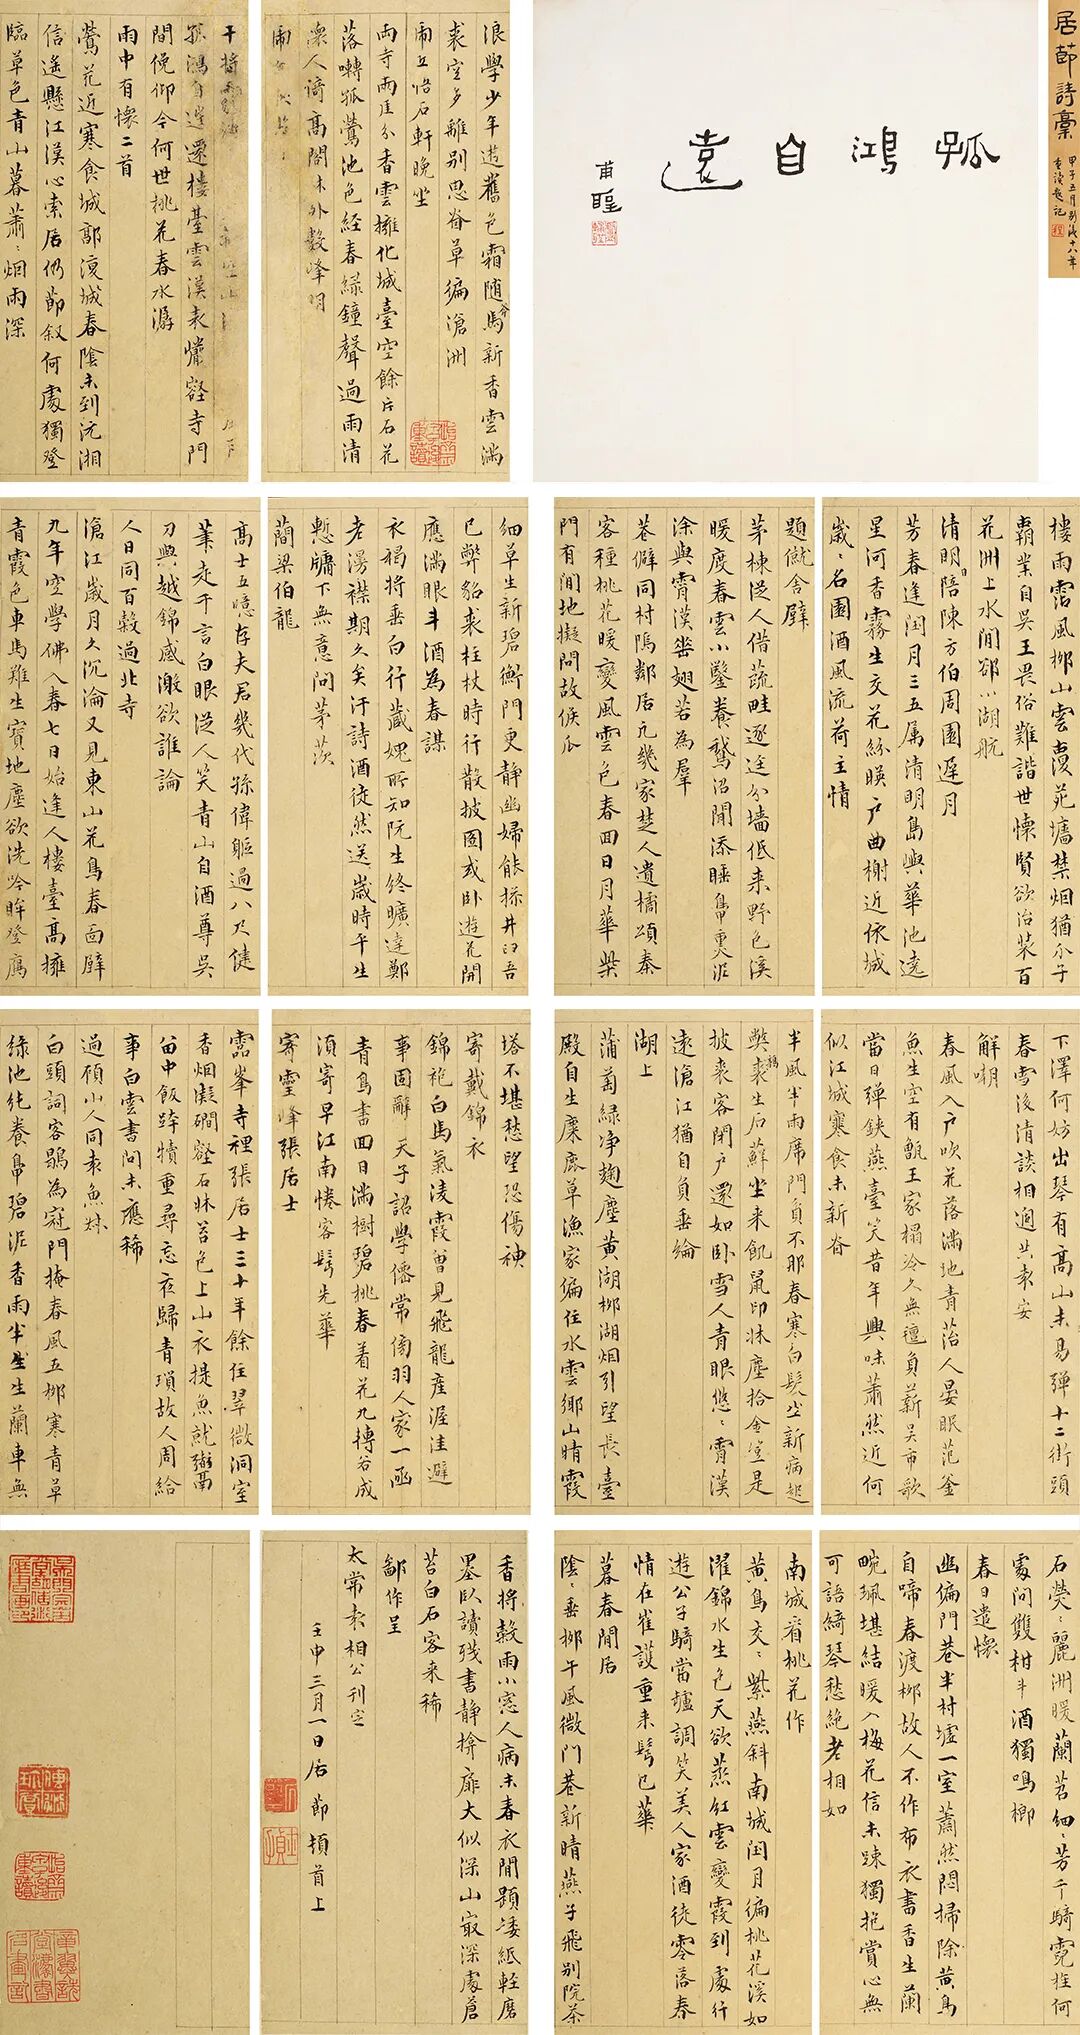 居節詩稾
甲子五月別後十八年
重讀題記
孤鴻自遠
浪學少年遊舊色霜随馬新香雲滿
裘空多離別思眷草徧滄洲
雨立治石軒晚坐
兩寺雨厓分香雲擁化城臺空餘片石花
落囀孤鶯池色經春綠鐘聲過雨清
人倚高閣木外數峰明
干將
孤鴻自遠還樓臺雲漢表懽壑寺門
間俛仰今何世桃花春水潺
雨中有懷二首
鶯花近寒食城郭傍城春陰未到沅湘
信遙懸江漢心索居仍節叙何處獨登
臨草色青山暮蕭〻烟雨深
樓雨霑風柳山雲覆苑墻禁烟猶介子
霸業自吳王畏俗難諧世懷賢欲治裝百
花洲上水閒卻小湖航
清明陪陳方伯周園遲月
芳春逢閏月三五屬清明島嶼華池遶
星河香霧生交花綠暎戶曲榭近依城
歲〻名園酒風流荷主情
題僦舍壁
茅棟從人借蔬畦逐逕分墻低来野色溪
暖度春雲小鑿養鵞沼閒添睡鳧熏泥
涂與霄漢垂翅若為羣
巷僻同村隖鄰居凡幾家楚人遺橘頌秦
客種桃花暖變風雲色春回日月華柴
門有閒地擬問故侯瓜
細草生新碧衡門更静幽婦能操井臼吾
已弊貂裘柱杖時行散披圖或卧遊花開
應滿眼斗酒為春謀
衣褐將垂白行藏媿所知阮生終曠達鄭
老漫襟期久矣汗詩酒徒然送歲時平生
慙牖下無意問茅茨
簡梁伯龍
高士五噫存夫君幾代孫偉軀過八尺健
筆走千言白眼從人笑青山自酒尊吳
刀與越錦感激欲誰論
人日同百穀過北寺
滄江歲月久沉淪又見東山花鳥春面壁
九年空學佛入春七日始逢人樓臺高擁
青霞色車馬難生寶地塵欲洗吟眸登鴈
塔不堪愁望恐傷神
寄戴錦衣
錦袍白馬氣淩霞曽見飛龍産渥洼避
事固辭天子詔學僊常傍羽人家一函
青鳥書回日滿樹碧桃春着花九轉若成
須寄早江南惓客鬂先華
寄靈峰張居士
靈峯寺裡張居士三十年餘住翠微洞室
香烟凝磵壑石牀苔色上山衣提魚就粥鬲
留中飯跨犢重尋忘夜歸青瑣故人周給
事白雲書問未應稀
過碩山人同袁魚牀
白頭詞客鶡為冠門掩春風五柳寒青草
綠池純養鳧碧泥香雨半生生蘭車無
下澤何妨出琴有高山未易彈十二街頭
春雪後清談相過共袁安
解嘲
春風入戶吹花落滿地青苔人晏眠范釜
魚生空有甑王家榻冷久無氊負薪吳市歌
當日彈鋏燕臺笑昔年興味蕭然近何
似江城寒食未新眷
半風半雨席門負不那春寒白髮坐新病起
弊裘生后蘇坐来飢鼠印牀塵拾金堂是
披裘客閉戶還如卧雪人青眼悠〻霄漢
遠滄江猶自負垂綸
湖上
蒲萄綠净麴塵黄湖柳湖烟引望長臺
殿自生麋鹿草漁家偏住水雲鄉山晴霞
石熒〻麗洲暖蘭苕細〻芳千騎霓旌何
處問雙柑斗酒獨鳴榔
春日遣懷
幽偏門巷半村墟一室蕭然悶掃除黄鳥
自啼春渡柳故人不作布衣書香生蘭
畹珮堪結暖入梅花信未踈獨抱賞心無
可語綺琴愁絶老相如
南城看桃花作
黄鳥交〻紫燕斜南城閏月徧桃花溪如
濯錦水生色天欲蒸紅雲變霞到處行
遊公子騎當壚調笑美人家酒徒零落春
情在崔護重来鬂已華
暮春閒居
陰〻垂柳午風微門巷新晴燕子飛别院茶
香將穀雨小窓人病未春衣閒題矮紙輕磨
墨臥讀殘書静揜扉大似深山最深處蒼
苔白石客来稀
鄙作呈
太常袁相公刊定
壬申三月一日居節頓首上